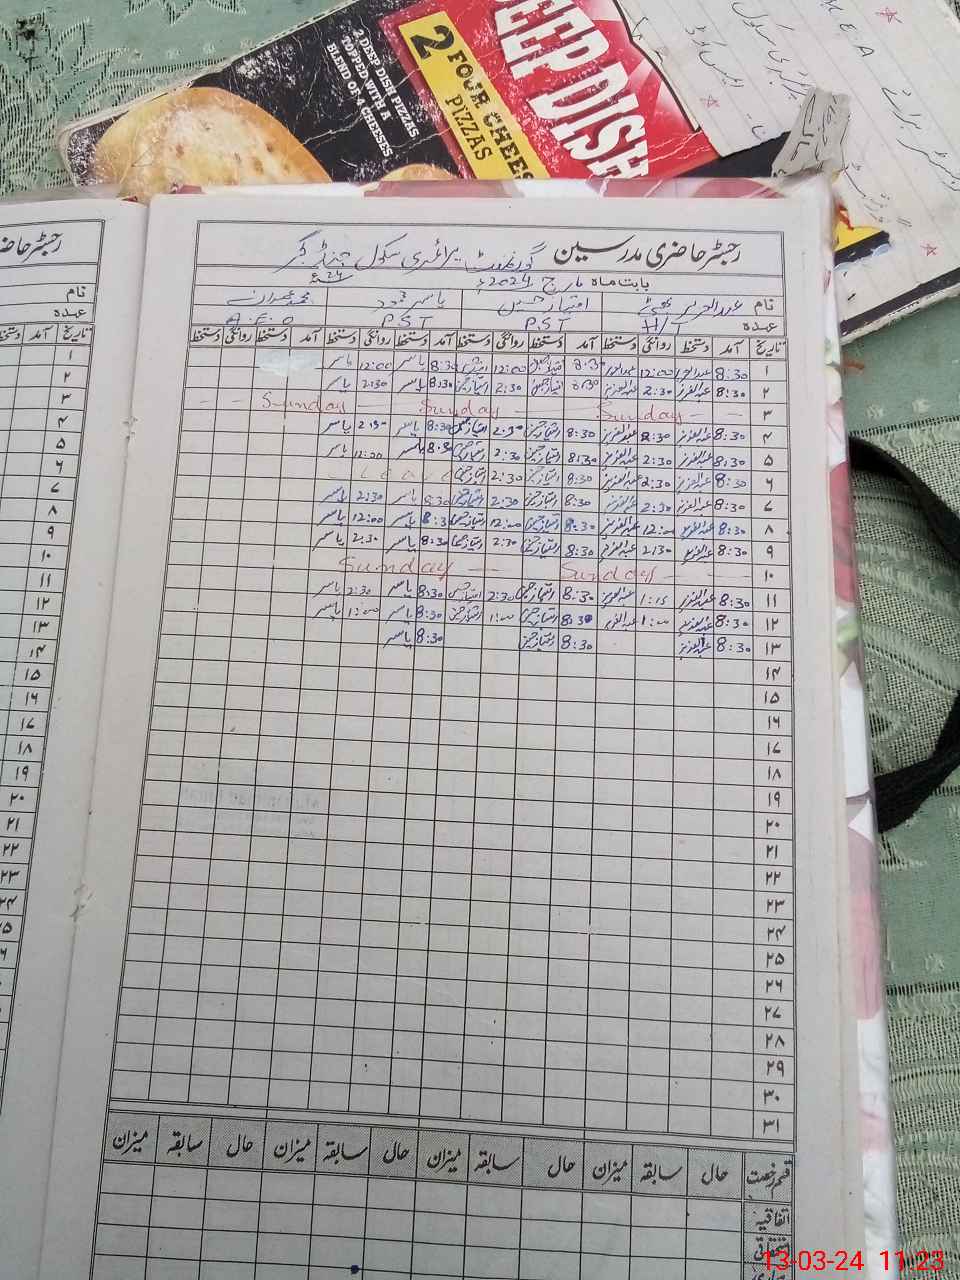 2 DEEP DISH PIZZAS
TOPPED WITH A
BLEND OF 4 CHEESES
2 FOUR CHEES
PIZZAS
EEP DISH
M E A
رجسٹر حاضری مدرسین گورنمنٹ پرائمری سکول جنڈ
بابت ماہ مارچ 2024ء
نام عبدالعزیز بھٹی امتیاز حسین یاسر محمود محمد عمران
عہدہ H/T P.S.T P.S.T A.E.O
تاریخ آمد دستخط روانگی دستخط آمد دستخط روانگی دستخط آمد دستخط روانگی دستخط آمد دستخط روانگی دستخط
۱ 8:30 عبدالعزیز 12:00 عبدالعزیز 8:30 امتیاز حسین 12:00 امتیاز حسین 8:30 یاسر 12:00 یاسر
۲ 8:30 عبدالعزیز 2:30 عبدالعزیز 8:30 امتیاز حسین 2:30 امتیاز حسین 8:30 یاسر 2:30 یاسر
۳ Sunday Sunday Sunday
۴ 8:30 عبدالعزیز 2:30 عبدالعزیز 8:30 امتیاز حسین 2:30 امتیاز حسین 8:30 یاسر 2:30 یاسر
۵ 8:30 عبدالعزیز 2:30 عبدالعزیز 8:30 امتیاز حسین 2:30 امتیاز حسین 8:30 یاسر 12:00 یاسر
۶ 8:30 عبدالعزیز 2:30 عبدالعزیز 8:30 امتیاز حسین 2:30 امتیاز حسین Leave
۷ 8:30 عبدالعزیز 2:30 عبدالعزیز 8:30 امتیاز حسین 2:30 امتیاز حسین 8:30 یاسر 2:30 یاسر
۸ 8:30 عبدالعزیز 12:00 عبدالعزیز 8:30 امتیاز حسین 12:00 امتیاز حسین 8:30 یاسر 12:00 یاسر
۹ 8:30 عبدالعزیز 2:30 عبدالعزیز 8:30 امتیاز حسین 2:30 امتیاز حسین 8:30 یاسر 2:30 یاسر
۱۰ Sunday Sunday
۱۱ 8:30 عبدالعزیز 1:15 عبدالعزیز 8:30 امتیاز حسین 2:30 امتیاز حسین 8:30 یاسر 2:30 یاسر
۱۲ 8:30 عبدالعزیز 1:00 عبدالعزیز 8:30 امتیاز حسین 1:00 امتیاز حسین 8:30 یاسر 1:00 یاسر
۱۳ 8:30 عبدالعزیز 8:30 امتیاز حسین 8:30 یاسر
۱۴
۱۵
۱۶
۱۷
۱۸
۱۹
۲۰
۲۱
۲۲
۲۳
۲۴
۲۵
۲۶
۲۷
۲۸
۲۹
۳۰
۳۱
قسم رخصت حال سابقہ میزان حال سابقہ میزان حال سابقہ میزان حال سابقہ میزان
اتفاقیہ
استحقاقی
رجسٹر حاضری
نام
عہدہ
تاریخ آمد دستخط
۱
۲
۳
۴
۵
۶
۷
۸
۹
۱۰
۱۱
۱۲
۱۳
۱۴
۱۵
۱۶
۱۷
۱۸
۱۹
۲۰
۲۱
۲۲
۲۳
۲۴
۲۵
13-03-24 11:23